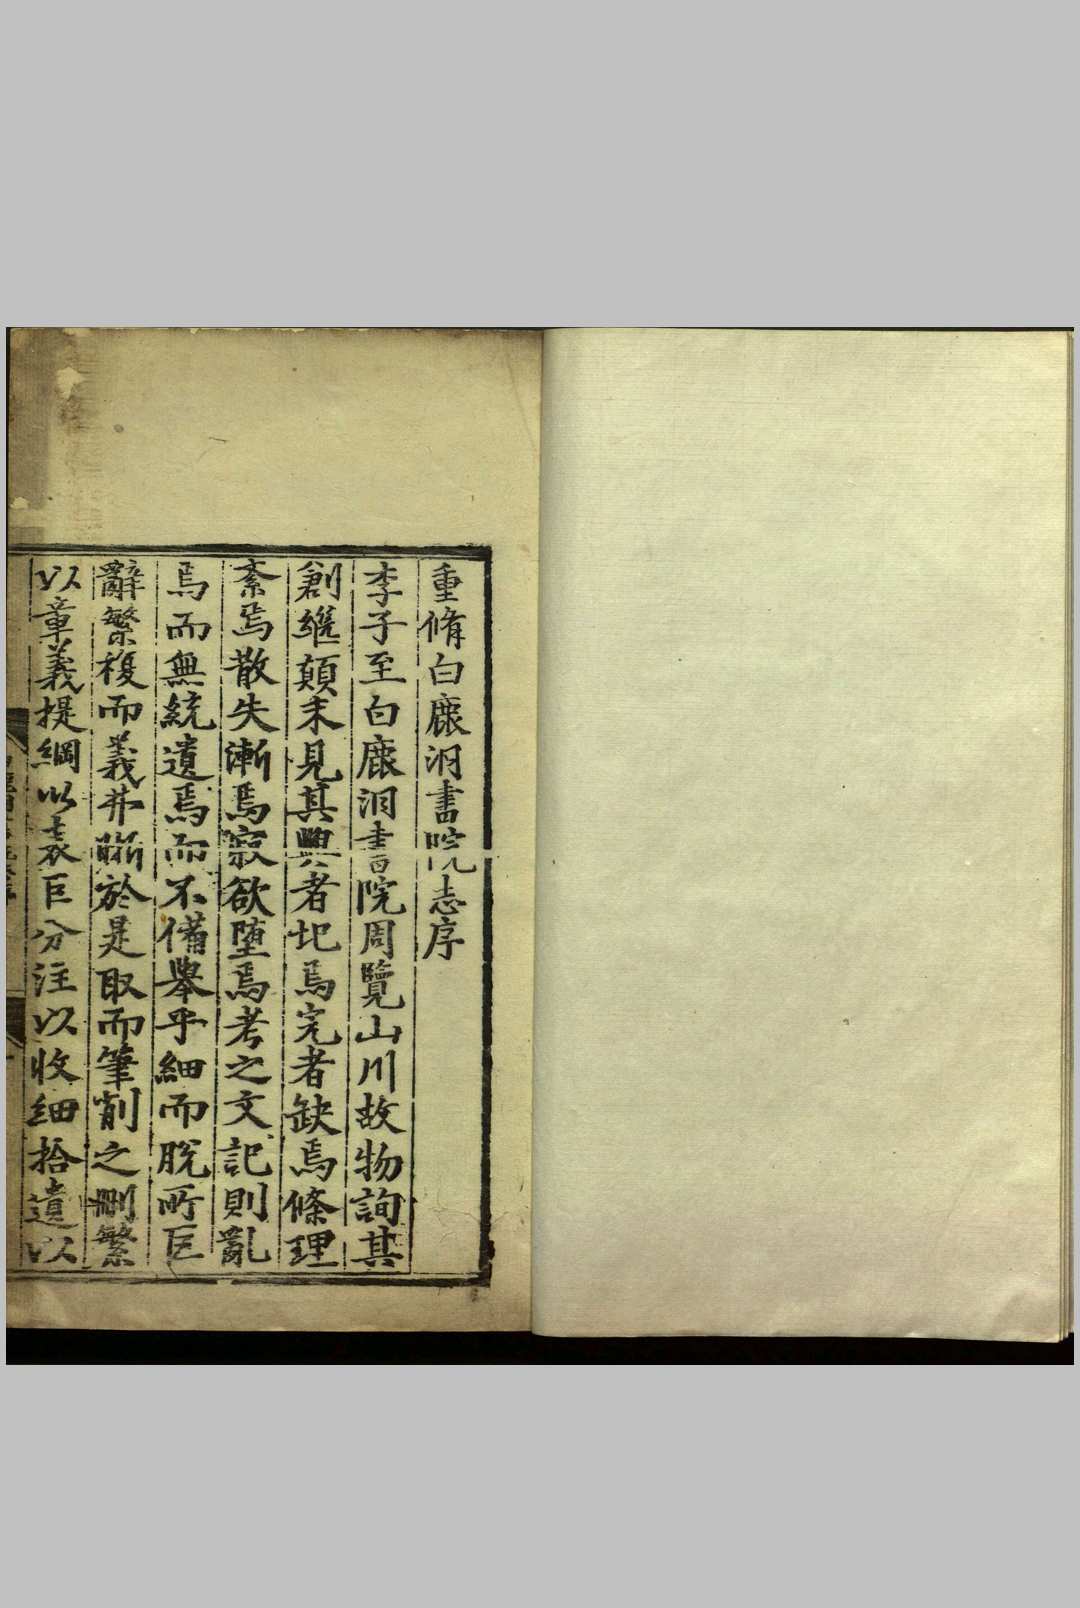 重脩白鹿洞書院志序
李子至白鹿洞書院周覽山川故物詢其
創繼顛末見其興者圮焉完者缺焉條理
紊焉散失漸焉寂欲墮焉考之文記則亂
焉而無統遺焉而不備舉乎細而脫所巨
辭繁複而義弗晰於是取而筆削之刪繁
以章義提綱以表巨分注以收細拾遺以